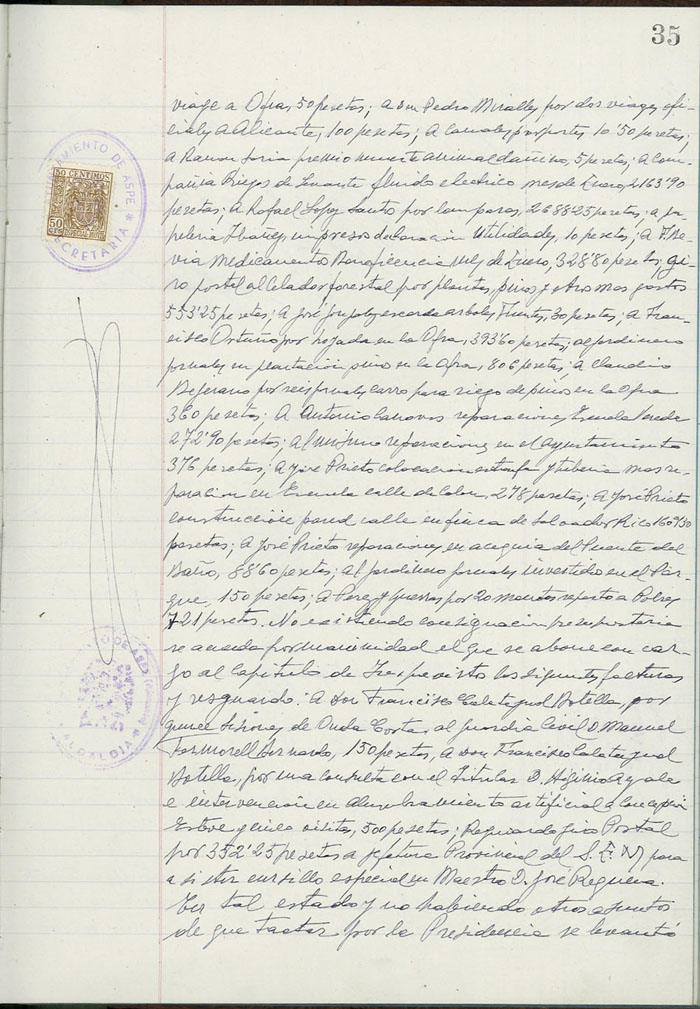 35
AYUNTAMIENTO DE ASPE
SECRETARIA
50 CENTIMOS
50
viage a Ofra, 50 pesetas; a Don Pedro Miralles por dos viages ofi-
ciales a Alicante, 100 pesetas; a Canales por portes 10'50 pesetas;
a Ramon Soria premio muerte animal dañino, 5 pesetas; a Com-
pañia Riegos de Levante fluido electrico mes de Enero, 2.163'90
pesetas; a Rafael Lopez Santo por lamparas, 2688'25 pesetas; a pa-
peleria Ibañez, impresos declaracion Utilidades, 10 pesetas; a
medicamentos Beneficencia mes de Enero, 328'80 pesetas, gi-
ro postal al Celador forestal por plantas, pinos y otros mas gastos
553'25 pesetas; a José Gonzalez escarda arboles Fuentes, 30 pesetas; a Fran-
cisco Asturiano por en la Ofra, 393'60 pesetas; al jardinero
jornales en plantacion pino en la Ofra, 806 pesetas; a Claudio
Bejerano por seis jornales carro para riego de pinos en la Ofra
360 pesetas; a Antonio Canovas reparaciones Escuela Vereda
272'90 pesetas; al mismo reparaciones en el ayuntamiento
376 pesetas; a José Prieto colocacion y tuberia mas re-
paracion en Escuela calle de Colon, 278 pesetas; a José Prieto
construccion pared calle en finca de Salvador Rico 1609'30
pesetas; a José Prieto reparaciones en acequia del Puente del
Baño, 88'60 pesetas; al jardinero jornales invertido en el Par-
que, 150 pesetas; a Perez y Guerras por 20 mantas reparto a Pobres
721 pesetas. No existiendo consignacion presupuestaria
se acuerda por unanimidad el que se abone con car-
go al Capitulo de Imprevisto los siguientes facturas
y resguardo: a Don Francisco Calatayud Botella, por
quince sesiones de Onda Corta, al guardia Civil D. Manuel
Fernando, 150 pesetas, a Don Francisco Calatayud
Botella, por una consulta con el Titular D. Higinio Ayala
e intervencion en alumbramiento artificial a Concepcion
Esteve y cinco visitas, 500 pesetas; Resguardo giro Postal
por 352'25 pesetas a Jefatura Provincial del S.E.M. para
asistir cursillo especial un Maestro D. José Requena.
En tal estado y no habiendo otros asuntos
de que tratar por la Presidencia se levantó
ALCALDIA